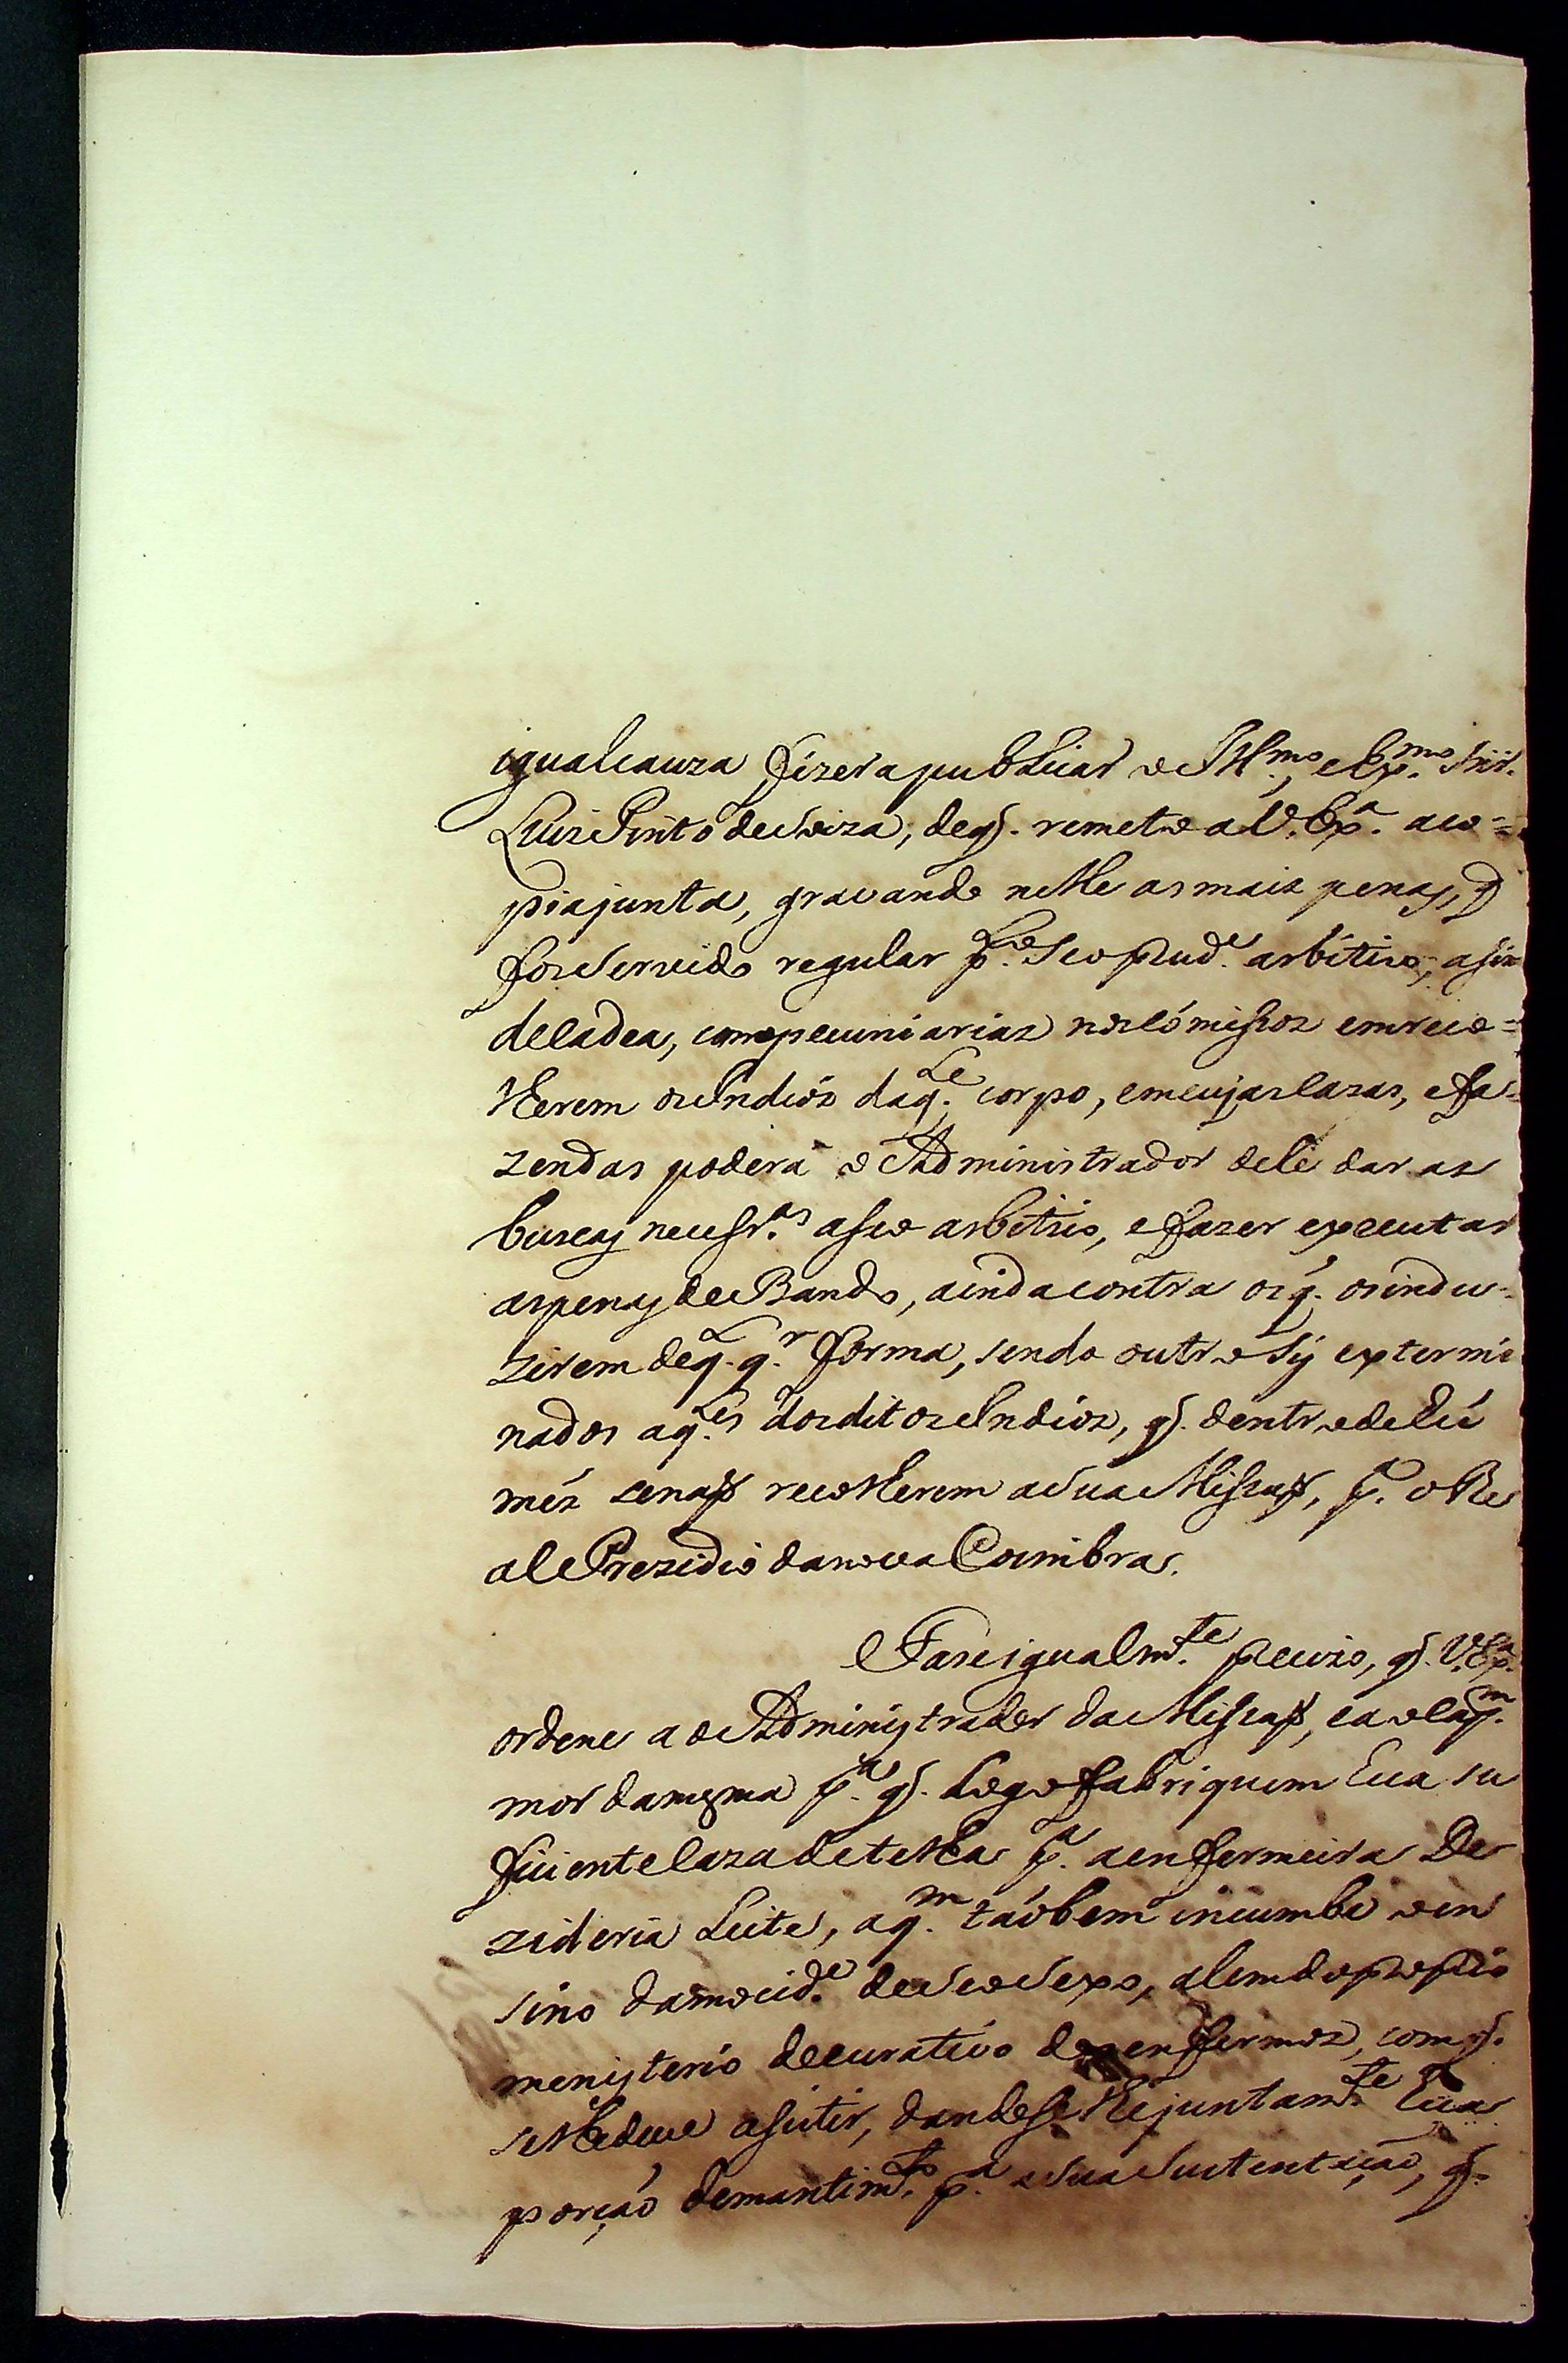 igual cauza fizera publicar o Ill.mo, e Ex.mo Snr.
Luiz Pinto de Soiza, de q. remeto a V. Ex.a a co=
pia junta, gravando nelle as mais penas, q
for servido regular p.lo seo prud.e arbitrio, asim
de cadea, como pecuniarias nos cómissos em reco=
lherem os Indios daq.le corpo, em cujas cazas, e fa=
zendas poderá o Administrador dele dar as
buscas necesr.as a seo arbitrio, e fazer executar
as penas de Bando, ainda contra os q. os indu=
zirem de q.l q.r forma, sendo outro sy extermi
nados aq.les dos ditos Indios, q. dentro de hú
mês senaõ recolherem a sua Missaõ, p.a o Re
al Prezidio da nova Coimbra.
Fase igualm.te precizo, q. V. Ex.a
ordene ao Administrador da Missaõ, e ao Cap.m
mor da mesma p.a q. Logo fabriquem hua su
ficiente caza de telha p.a a enfermeira De
zideria Leite, a q.m taõbem incumbe o en
sino da mocid.e de seo sexo, alem do proprio
menisterio de curativo dos enfermos, com q.
se lhe deve asistir, dandose lhe juntam.te hua
porçaõ de mantim.to p.a a sua sustentaçaõ, q.